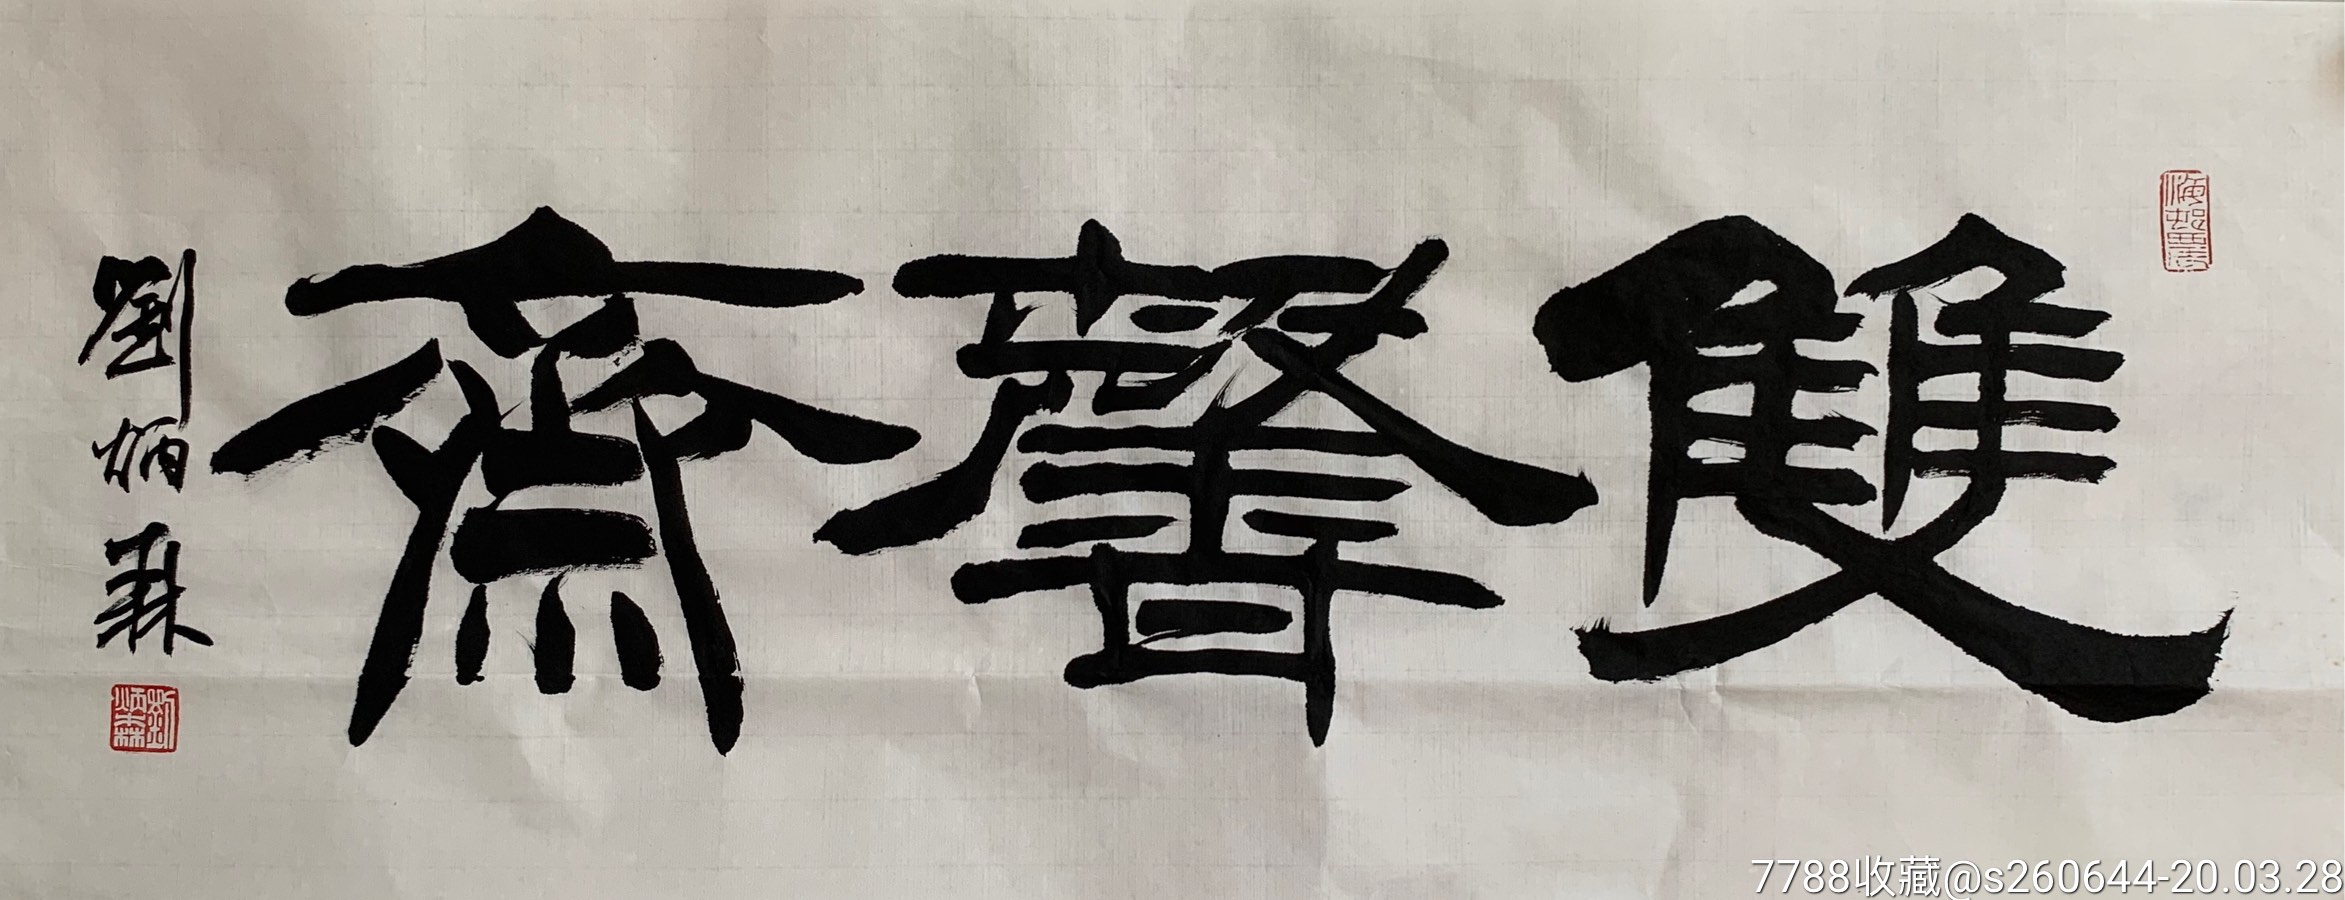 雙馨齋
劉炳森
劉炳森
7788收藏@s260644-20.03.28